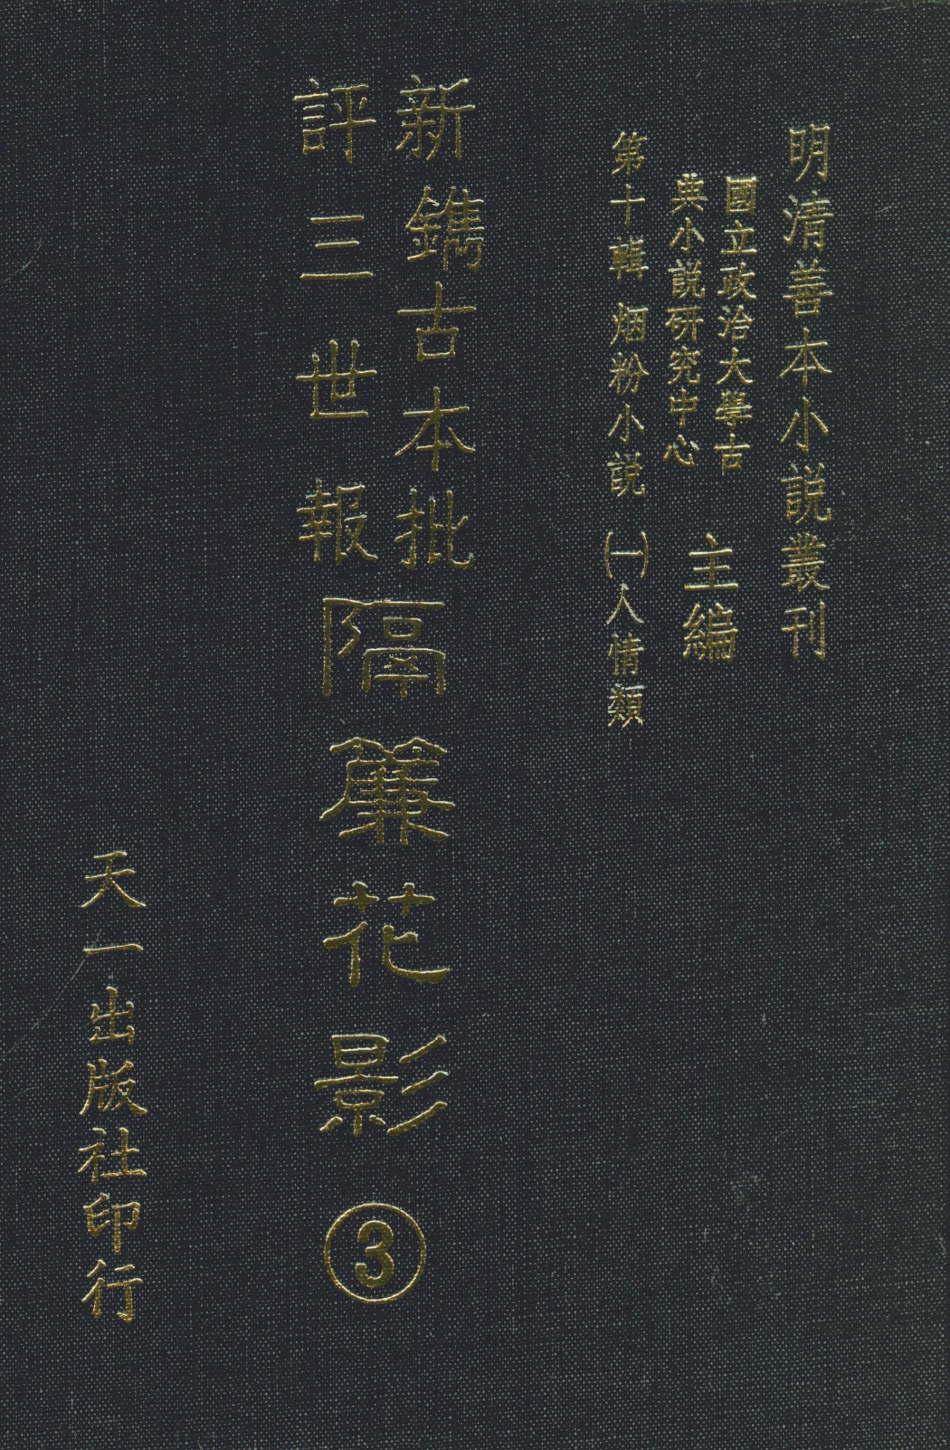 明清善本小説叢刊
國立政治大學古
典小説研究中心
主編
第十輯 烟粉小説 (一)人情類
新鐫古本批
評三世報
隔簾花影 ③
天一出版社印行